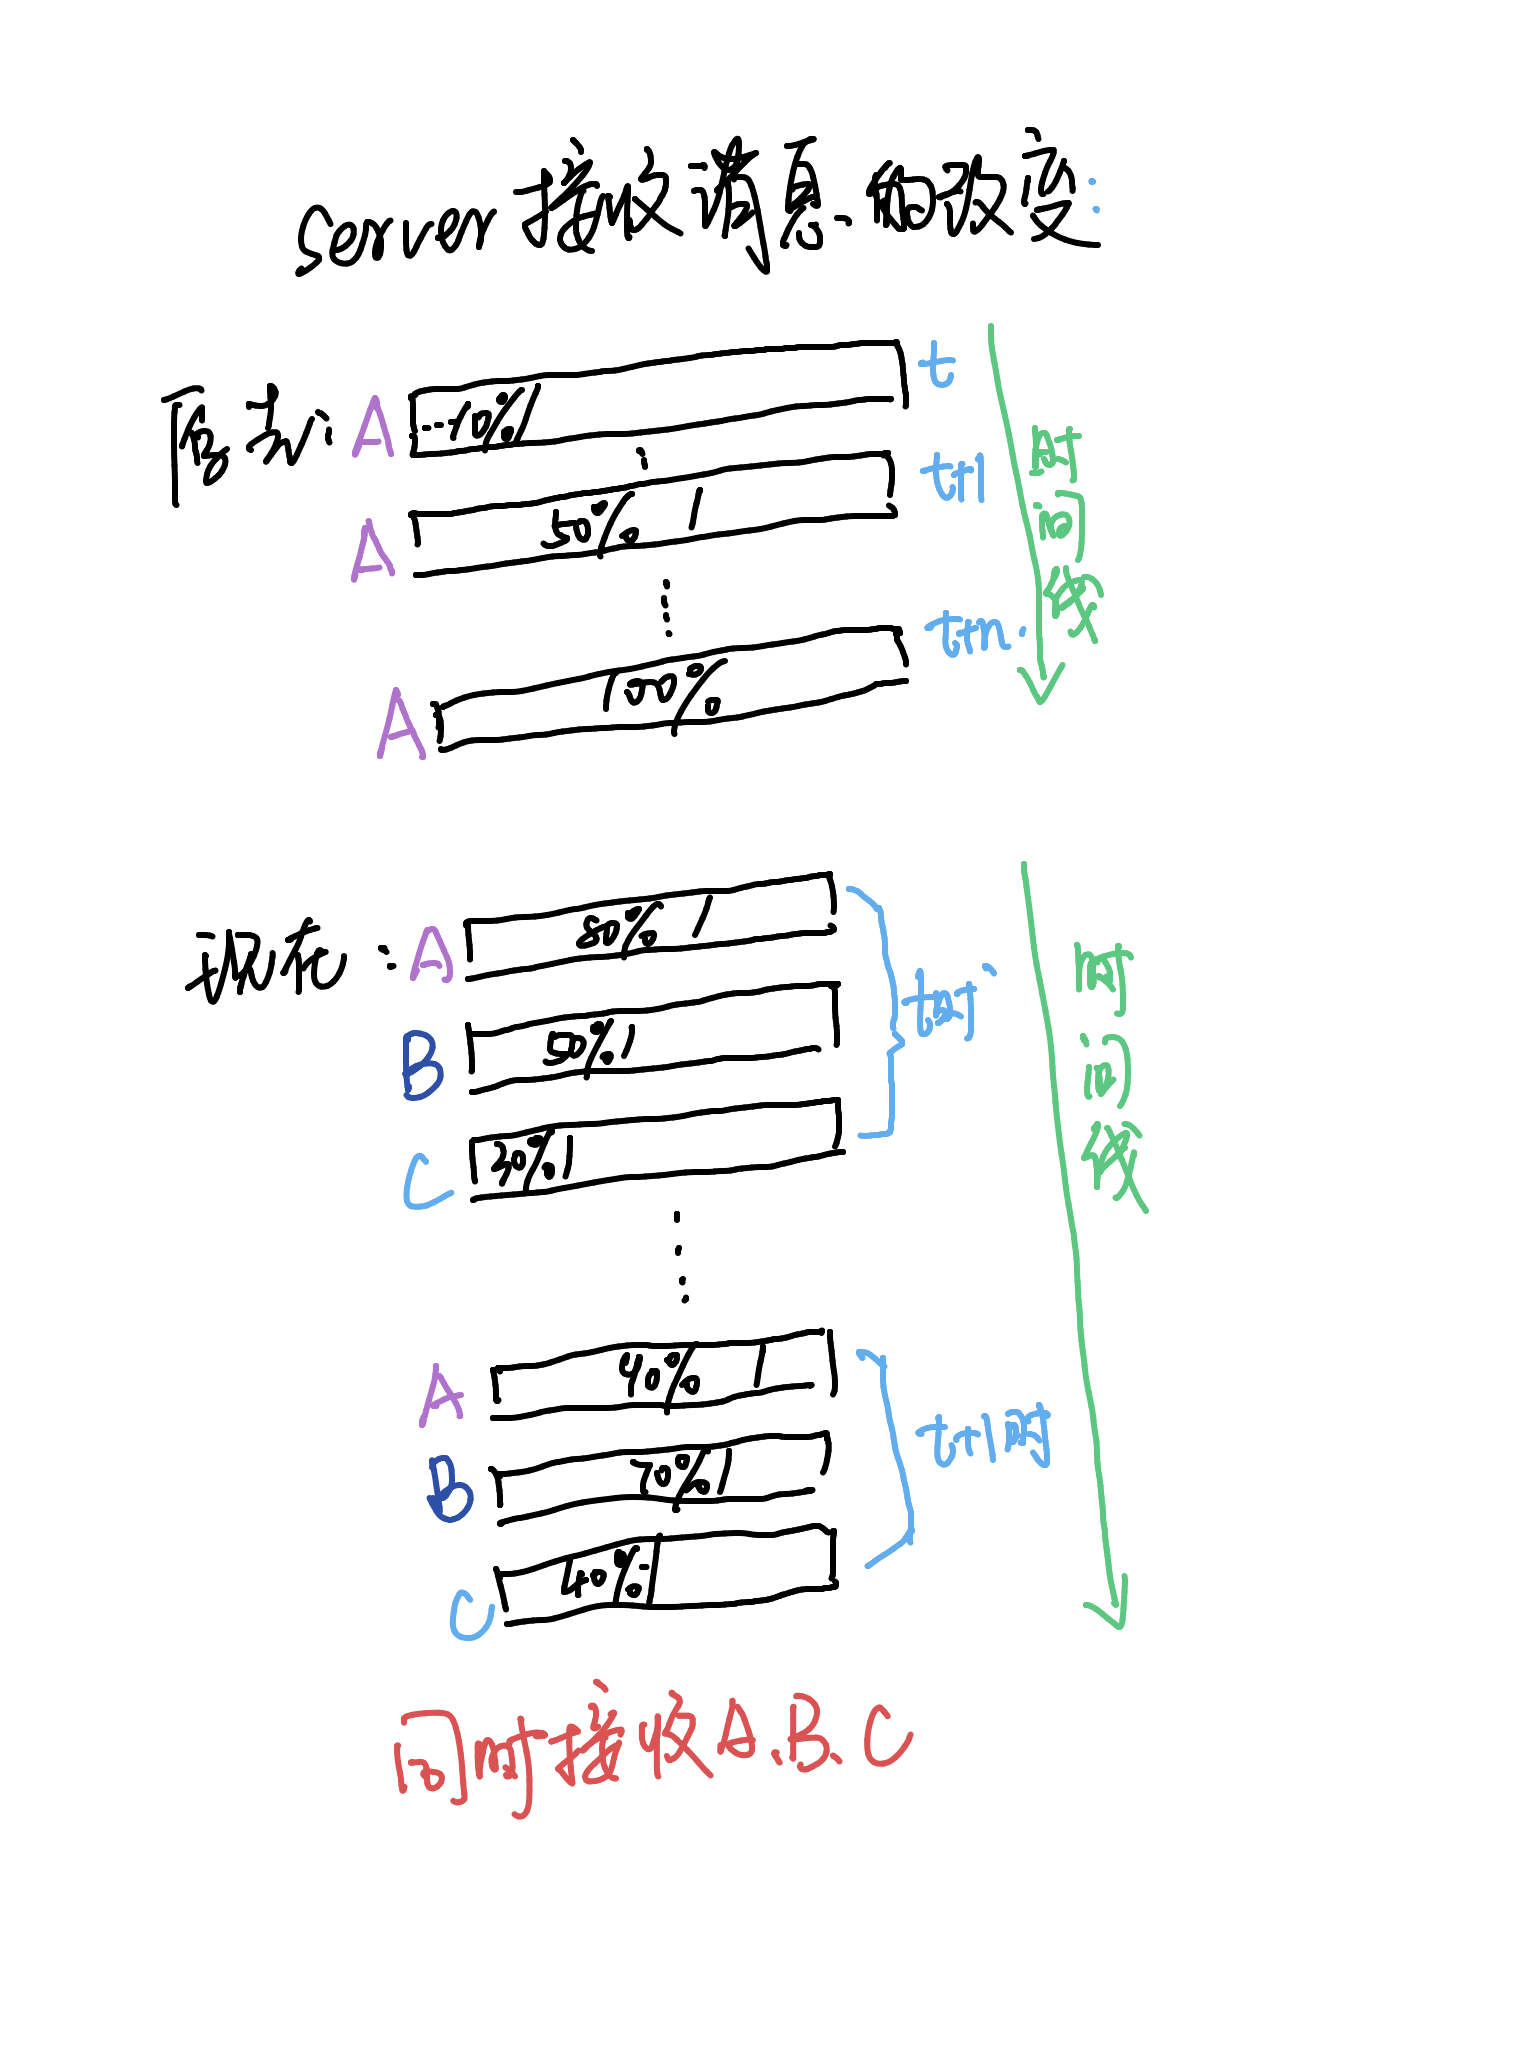 server 接收消息的改变:
原来: A 10% t
A 50% t+1
A 100% t+n.
时间线
现在: A 80%
B 50%
C 30%
t时
A 40%
B 70%
C 40%
t+1时
时间线
同时接收A、B、C